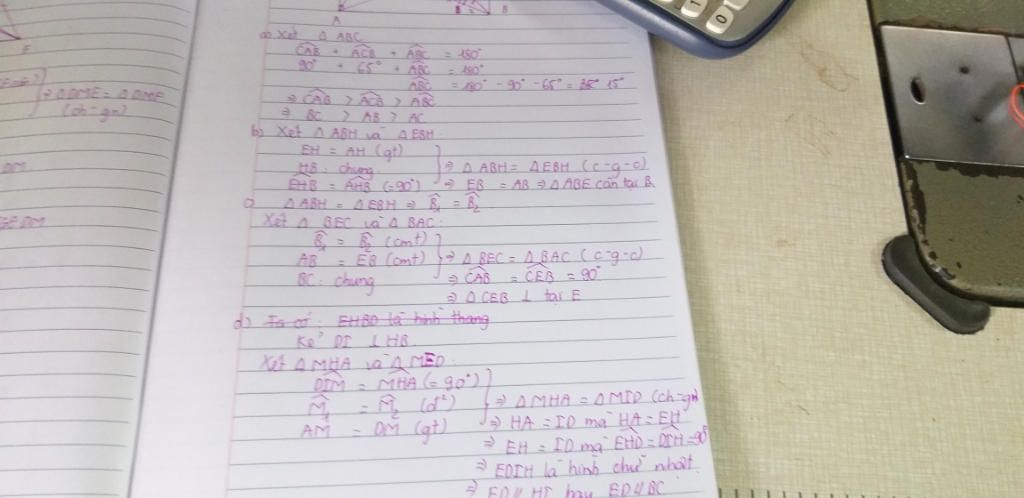 A
B
F
1
0
a) Xét △ ABC
CAB + ACB + ABC = 180°
90° + 65° + ABC = 180°
ABC = 180° - 90° - 65° = 15°
⇒ CAB > ACB > ABC
⇒ BC > AB > AC
b) Xét △ ABH và △ EBH
EH = AH (gt)
HB: chung
EHB = AHB (=90°)
⇒ △ ABH = △ EBH (c-g-c)
⇒ EB = AB ⇒ △ ABE cân tại B
c) △ ABH = △ EBH ⇒ B₁ = B₂
Xét △ BEC và △ BAC
B₁ = B₂ (cmt)
AB = EB (cmt)
BC: chung
⇒ △ BEC = △ BAC (c-g-c)
⇒ CAB = CEB = 90°
⇒ △ CEB ⊥ tại E
d) Ta có: EHBD là hình thang
Kẻ DI ⊥ HB
Xét △ MHA và △ MED
DIM = MHA (= 90°)
M₁ = M₂ (đ²)
AM = DM (gt)
⇒ △ MHA = △ MID (ch-gn)
⇒ HA = ID mà HA = EH
⇒ EH = ID mà EHD = DIH = 90°
⇒ EDIH là hình chữ nhật
⇒ ED // HI hay ED // BC
⇒ △ DME = △ DMF
(ch-gn)
DM